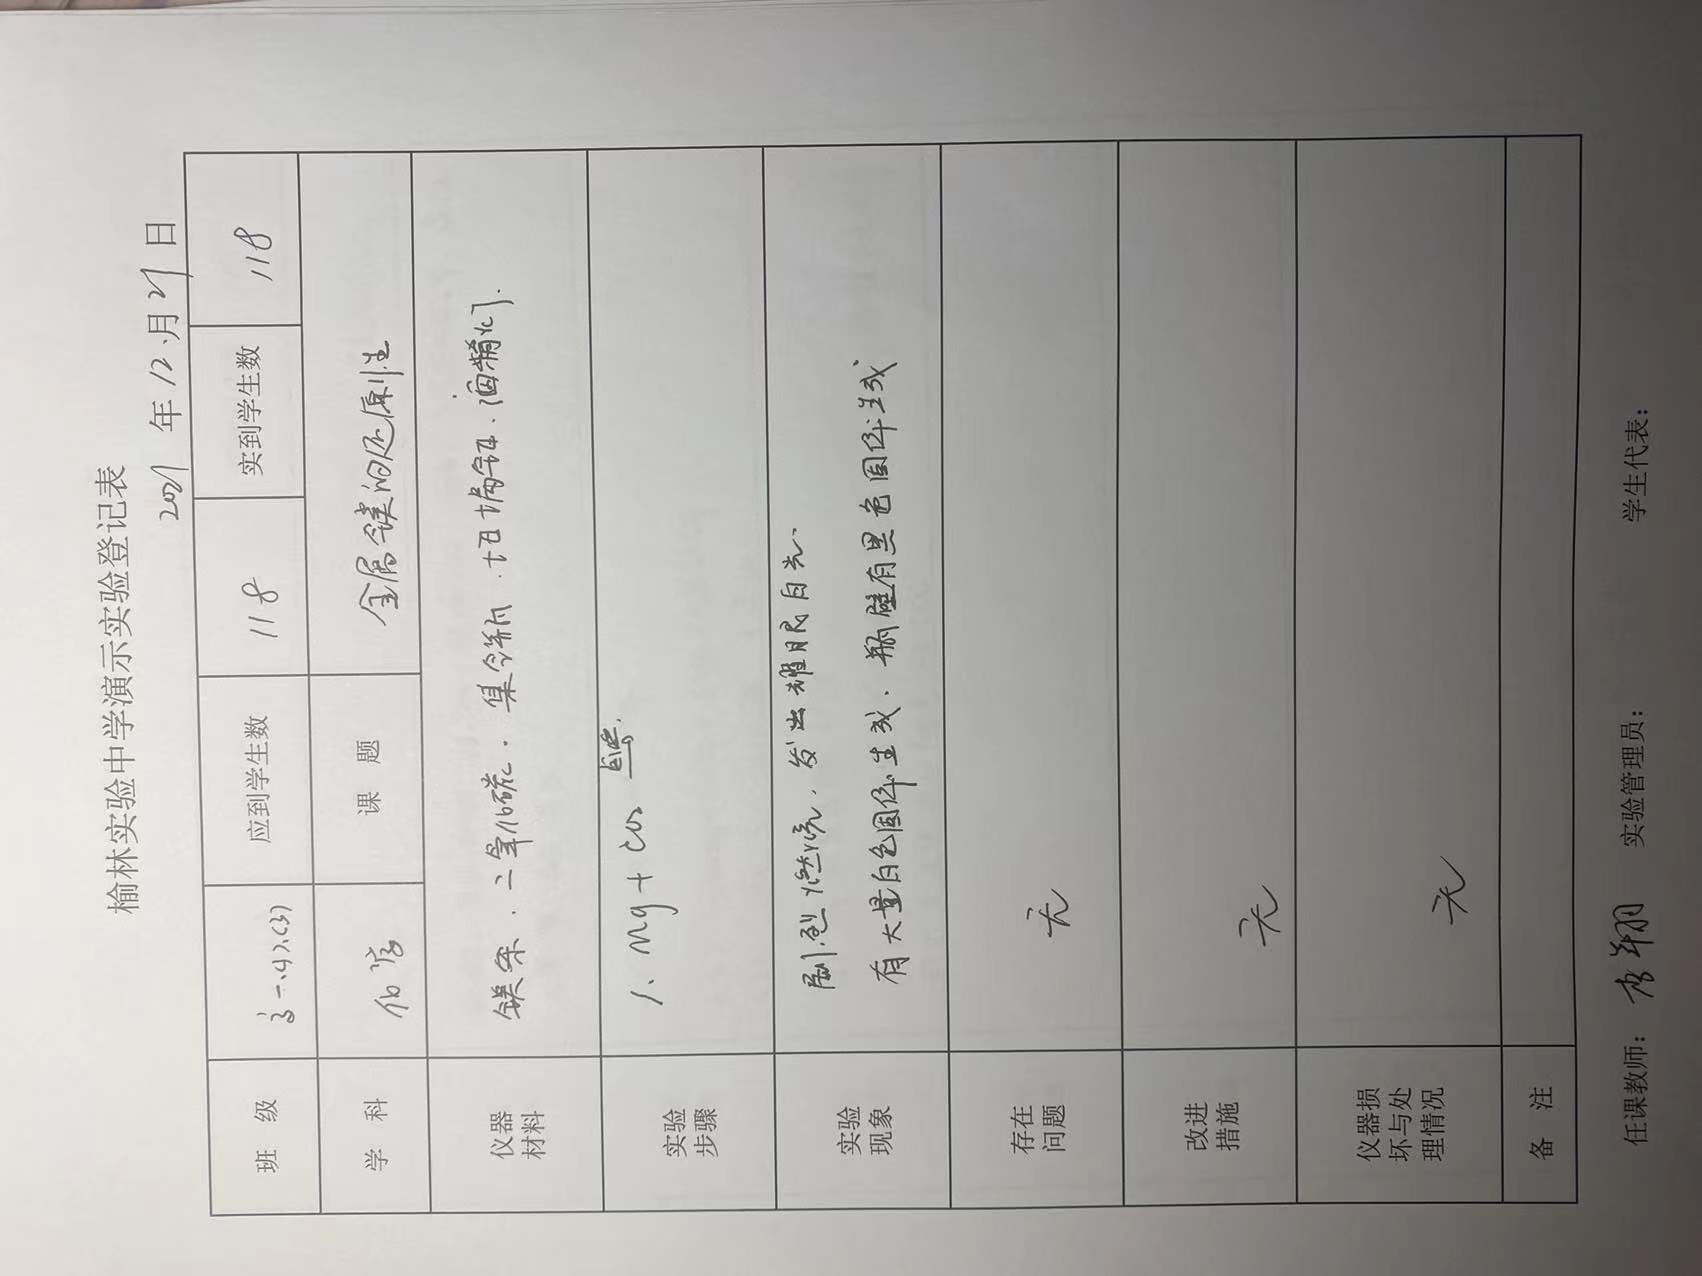 榆林实验中学演示实验登记表
2021年12月27日
班 级 高一.(1).(3) 应到学生数 118 实到学生数 118
学 科 化学 课 题 金属镁的还原性
仪器
材料
镁条.二氧化碳.集气瓶.坩埚钳.酒精灯.
实验
步骤
1. Mg + CO2 点燃
实验
现象
剧烈燃烧,发出耀眼白光.
有大量白色固体生成.瓶壁有黑色固体生成
存在
问题
无
改进
措施
无
仪器损
坏与处
理情况
无
备 注
任课教师: 李翔 实验管理员: 学生代表: